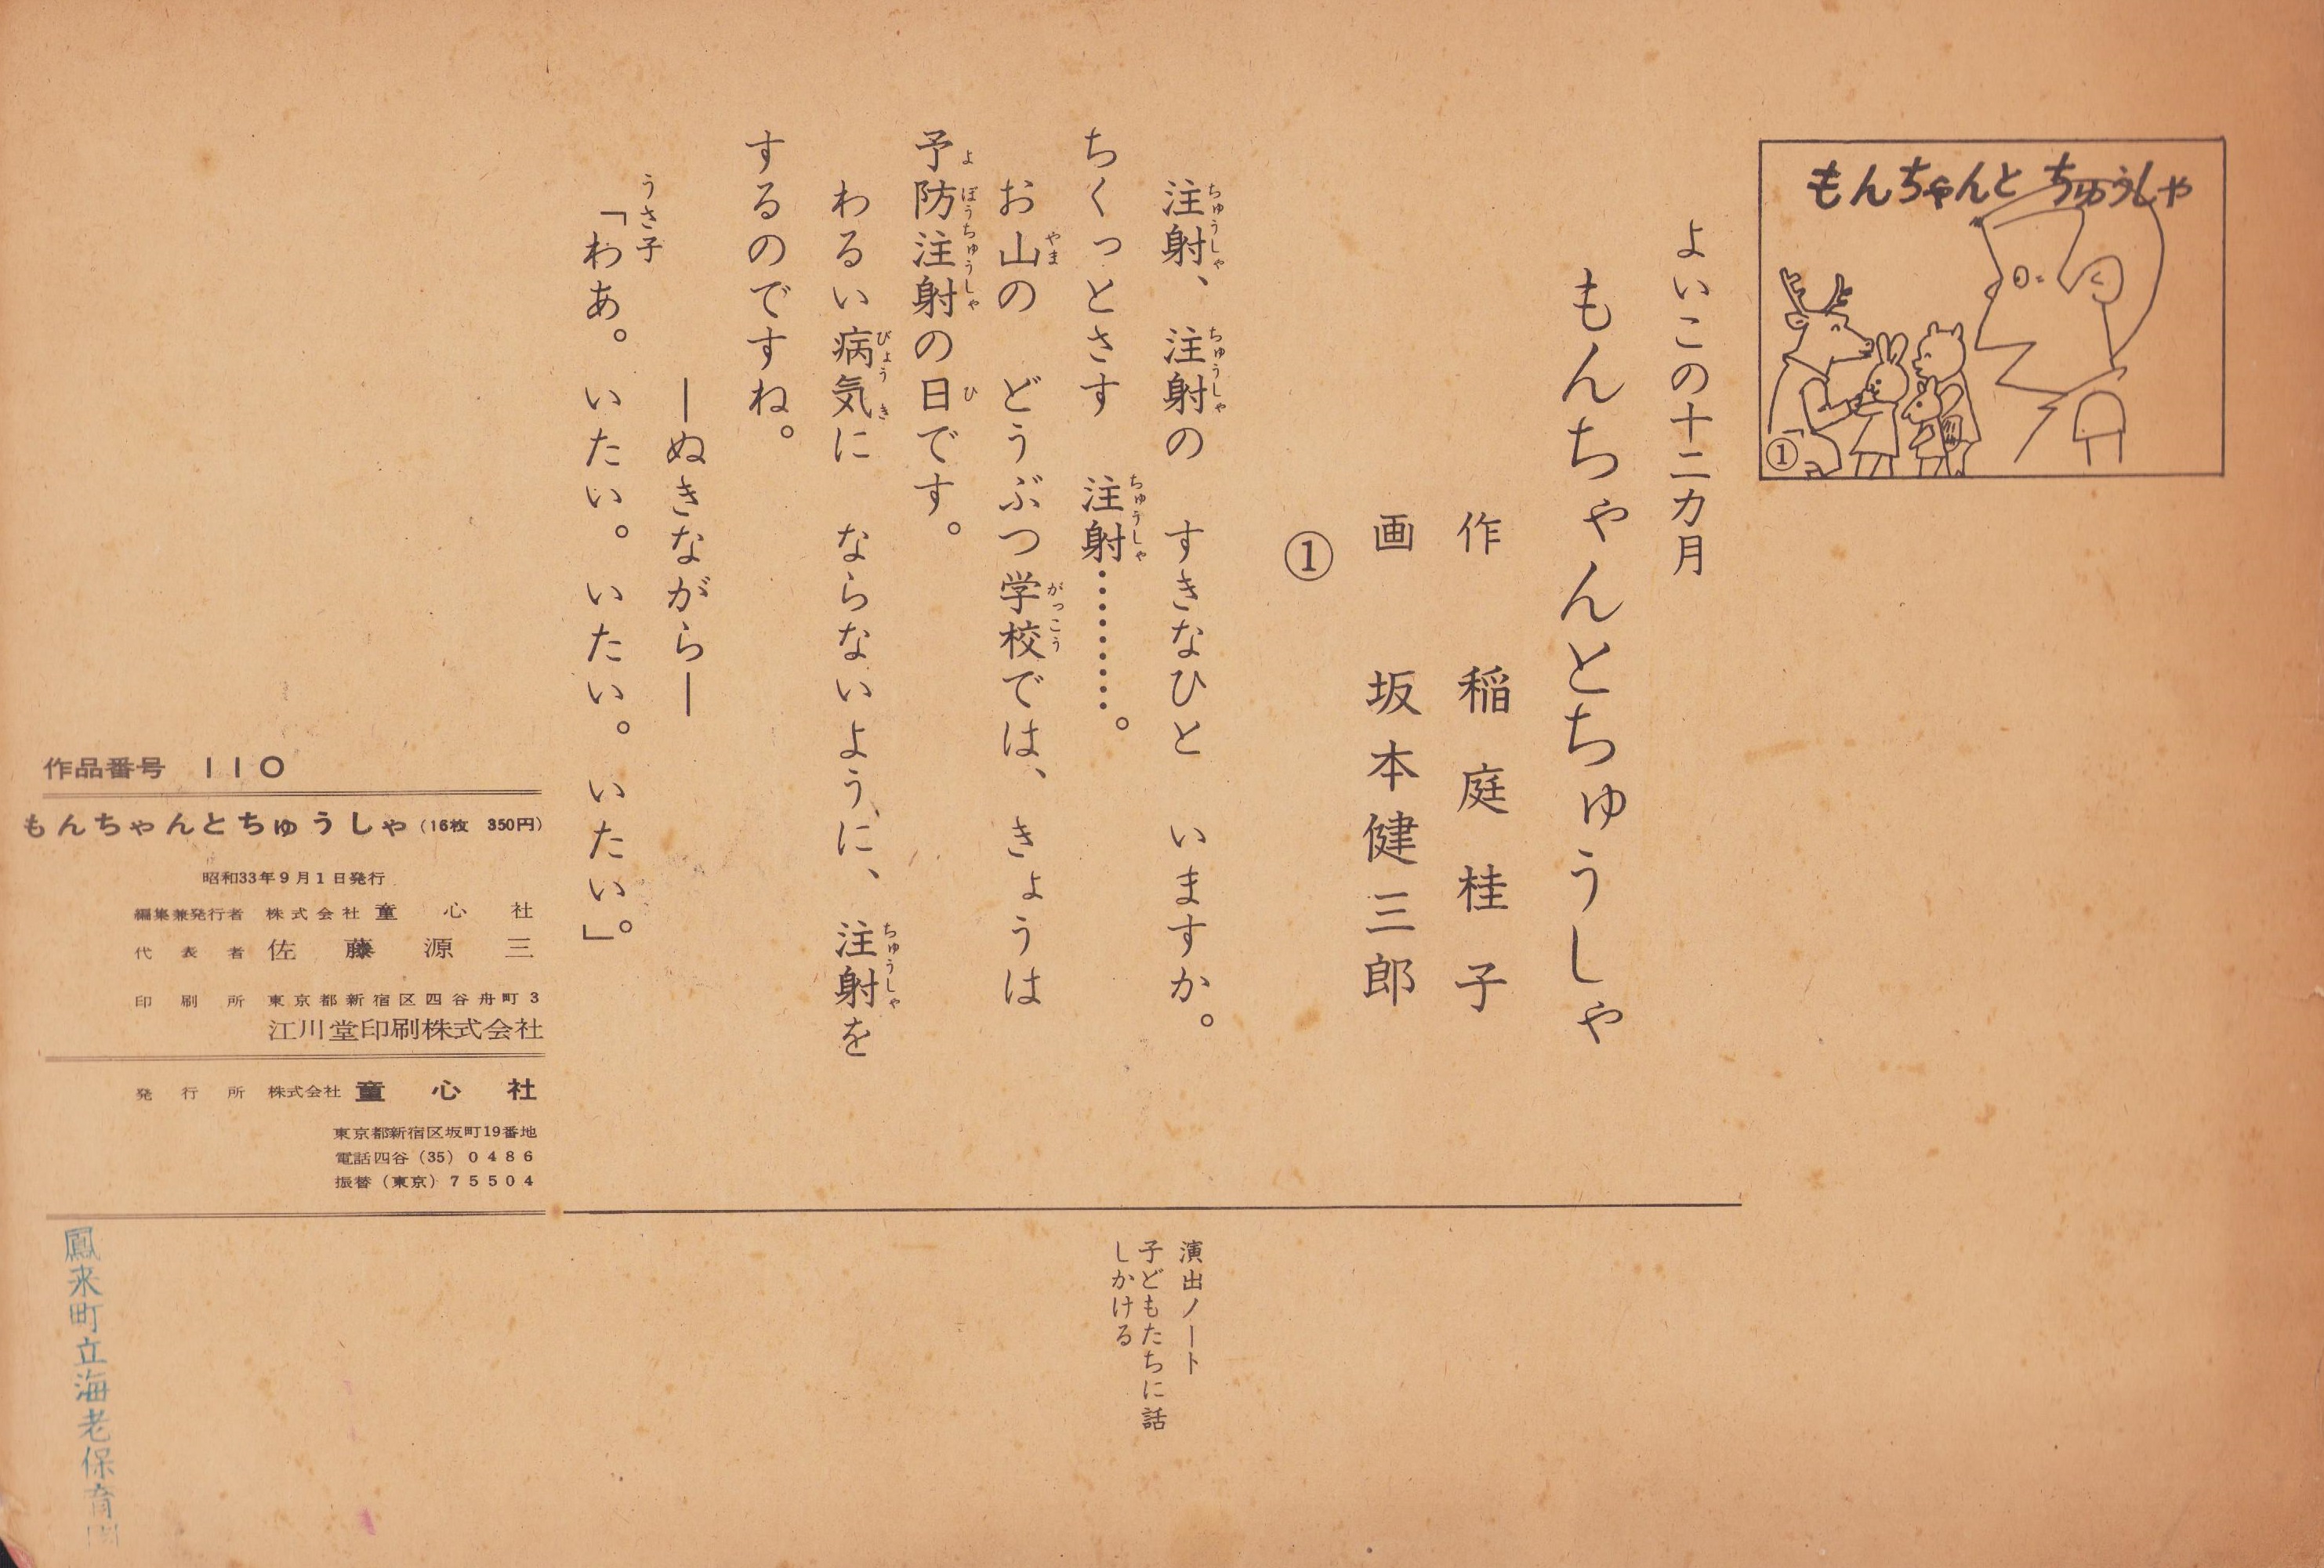 もんちゃんと ちゅうしゃ
①
よいこの十二カ月
もんちゃんとちゅうしゃ
作 稲庭桂子
画 坂本健三郎
①
注射、注射の すきなひと いますか。
ちくっとさす 注射………。
お山の どうぶつ学校では、きょうは
予防注射の日です。
わるい病気に ならないように、注射を
するのですね。
―ぬきながら―
うさ子
「わあ。いたい。いたい。いたい。」
演出ノート
子どもたちに話
しかける
作品番号 110
もんちゃんとちゅうしゃ(16枚 350円)
昭和33年9月1日発行
編集兼発行者 株式会社 童心社
代表者 佐藤源三
印刷所 東京都新宿区四谷舟町3
江川堂印刷株式会社
発行所 株式会社 童心社
東京都新宿区坂町19番地
電話四谷(35)0486
振替(東京)75504
鳳来町立海老保育園